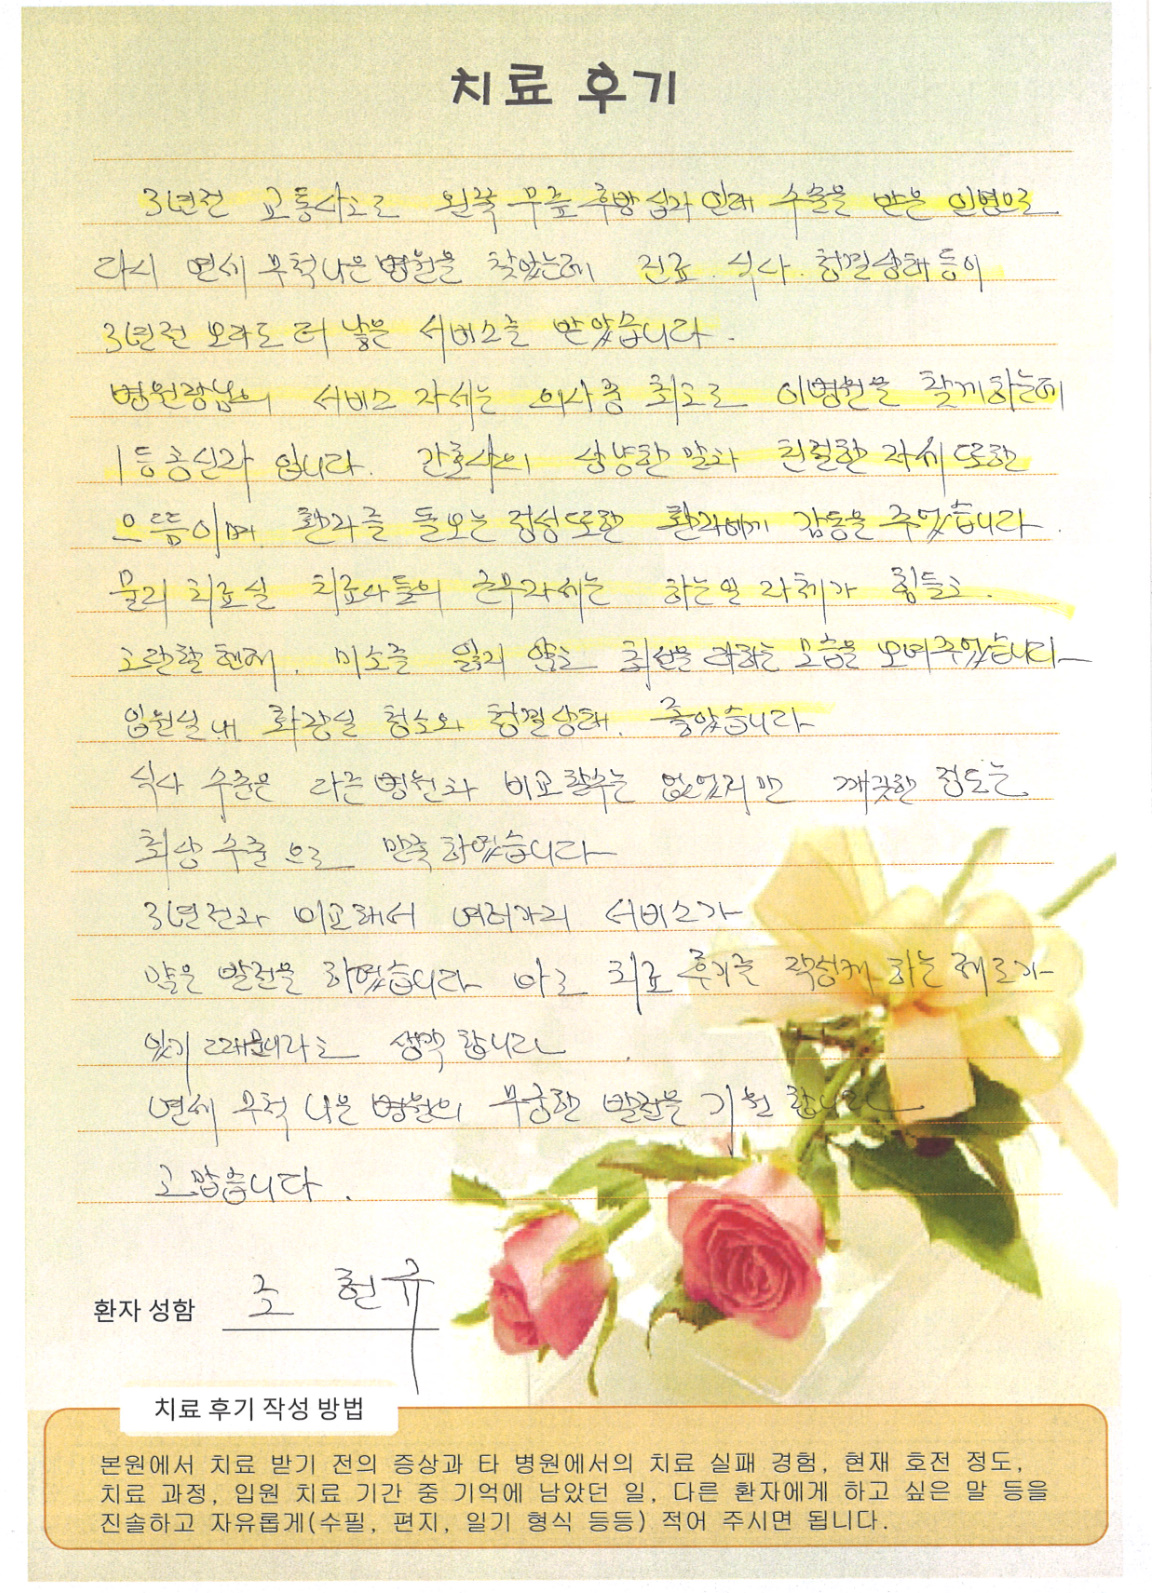 치료 후기
3년전 교통사고로 왼쪽 무릎 후방 십자 인대 수술을 받은 인연으로
다시 연세 무척나은병원을 찾았는데 진료. 식사. 청결상태등이
3년전 보다도 더 낳은 서비스를 받았습니다.
병원장님의 서비스 자세는 의사중 최고로 이병원을 찾게하는데
1등공신자 입니다. 간호사의 상냥한 말과 친절한 자세 또한
으뜸이며. 환자를 돌보는 정성또한 환자에게 감동을 주었습니다.
물리 치료실 치료사들의 근무자세는 하는일 자체가 힘들고.
고단할텐데. 미소를 잃지 않고 최선을 다하는 모습을 보여주었습니다
입원실내 화장실 청소와 청결상태. 좋았습니다
식사 수준은 다른병원과 비교할수는 없었지만 깨끗한 정도는
최상 수준으로 만족하였습니다
3년전과 비교해서 여러가지 서비스가
많은 발전을 하였습니다 바로 치료 후기를 작성케 하는 제도가
있기 때문이라고 생각 합니다.
연세 무척 나은 병원의 무궁한 발전을 기원 합니다
고맙습니다.
환자 성함 조 현규
치료 후기 작성 방법
본원에서 치료 받기 전의 증상과 타 병원에서의 치료 실패 경험, 현재 호전 정도,
치료 과정, 입원 치료 기간 중 기억에 남았던 일, 다른 환자에게 하고 싶은 말 등을
진솔하고 자유롭게(수필, 편지, 일기 형식 등등) 적어 주시면 됩니다.